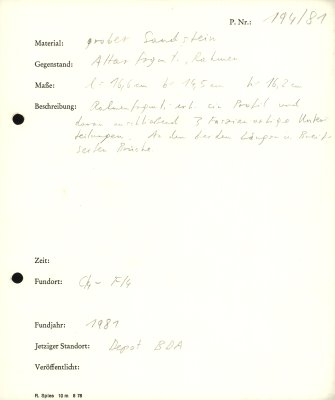 P. Nr.: 194/81
Material: grober Sandstein
Gegenstand: Altar fragm., Rahmen
Maße: l= 16,6 cm b= 14,5 cm h= 16,2 cm
Beschreibung: Rahmenfragment mit Profil und
3
teilungen. An den beiden Längs- u.
seiten Brüche
Zeit:
Fundort: G4- F/4
Fundjahr: 1981
Jetziger Standort: Depot BDA
Veröffentlicht:
R. Spies 10 m 8 78